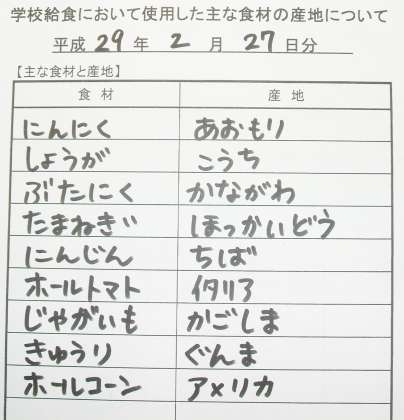 学校給食において使用した主な食材の産地について
平成 29 年 2 月 27 日分
【主な食材と産地】
食材 産地
にんにく あおもり
しょうが こうち
ぶたにく かながわ
たまねぎ ほっかいどう
にんじん ちば
ホールトマト イタリア
じゃがいも かごしま
きゅうり ぐんま
ホールコーン アメリカ